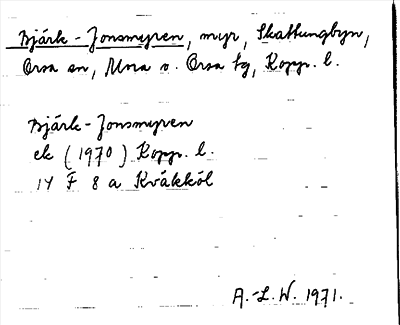 Bjärk-Jonsmyren, myr, Skattungbyn,
Orsa sn, Mora o. Orsa tg, Kopp. l.
Bjärk-Jonsmyren
ek (1970) Kopp. l.
14 F 8 a Kväkköl
A.-L.W. 1971.